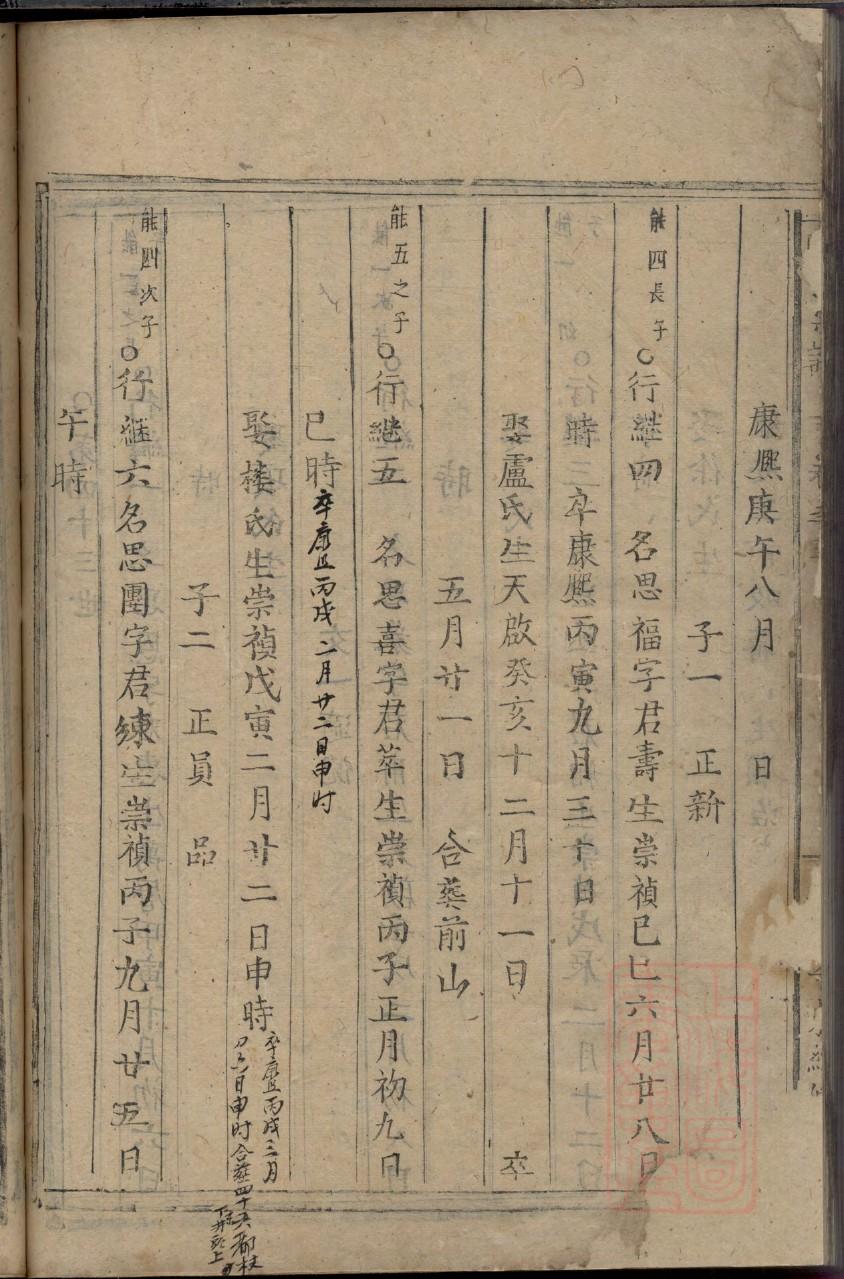 康熙庚午八月 日
子一 正新
能四長子○行継四 名思福字君壽生崇禎己巳六月廿八日
時 卒康熙丙寅九月三十日
娶盧氏生天啟癸亥十二月十一日 卒
五月廿一日 合葬前山
能五之子○行継五 名思喜字君萃生崇禎丙子正月初九日
巳時卒康熙丙戌二月廿二日申时
娶楼氏生崇禎戊寅二月廿二日申時卒康熙丙戌三月
六日申时合葬四十六都
上
子二 正員 品
能四次子○行継六名思團字君練生崇禎丙子九月廿五日
午時